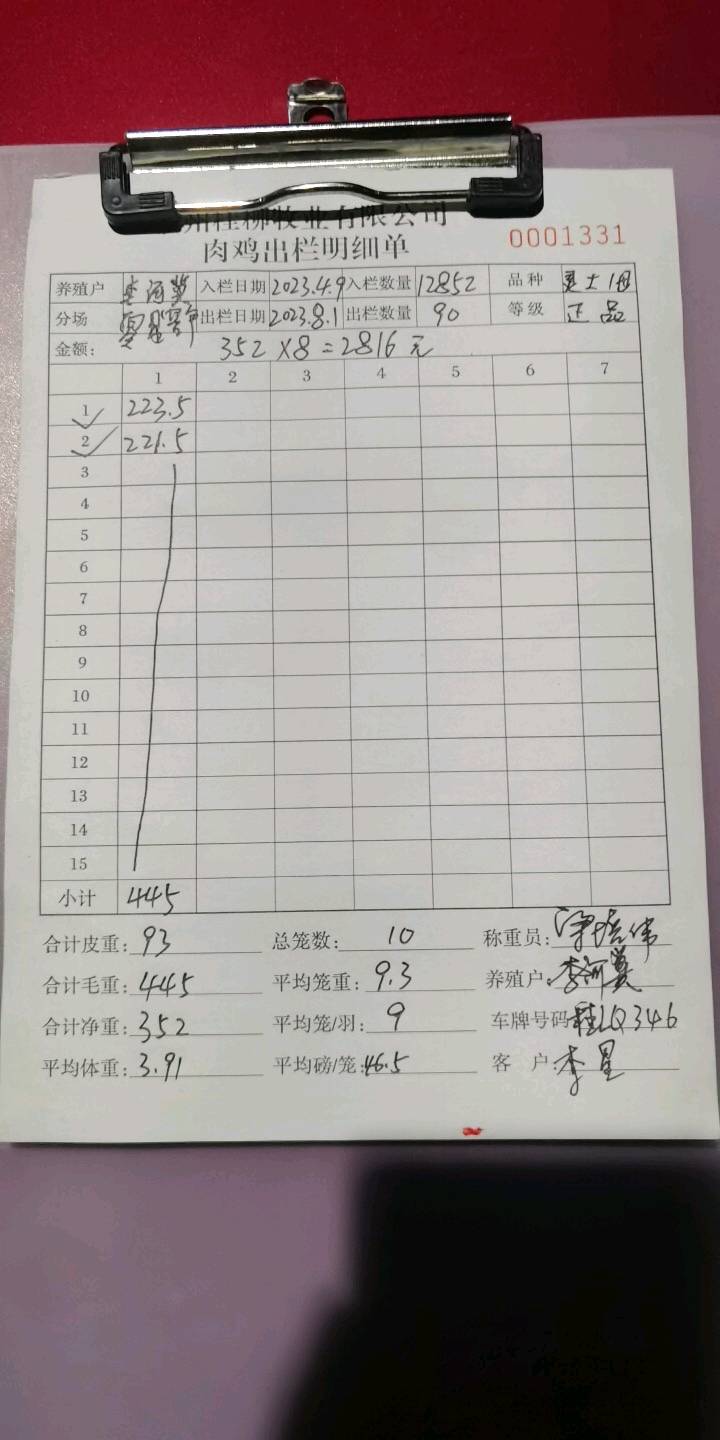 州桂柳牧业有限公司
肉鸡出栏明细单 0001331
养殖户 李河冀 入栏日期 2023.4.9 入栏数量 12852 品种
分场 出栏日期 2023.8.1 出栏数量 90 等级 正品
金额: 352×8=2816元
1 2 3 4 5 6 7
1 223.5
2 221.5
3
4
5
6
7
8
9
10
11
12
13
14
15
小计 445
合计皮重: 93 总笼数: 10 称重员:
合计毛重: 445 平均笼重: 9.3 养殖户: 李河冀
合计净重: 352 平均笼/羽: 9 车牌号码 桂LQ346
平均体重: 3.91 平均磅/笼: 46.5 客户: 李星